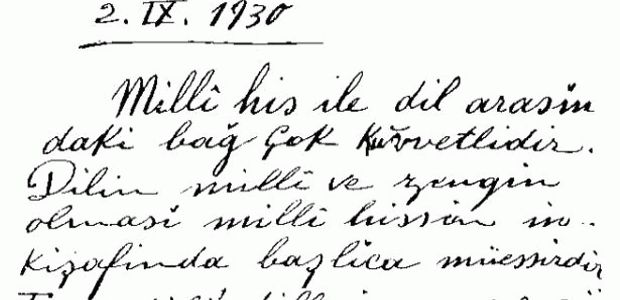 2. IX. 1930
Millî his ile dil arasın
daki bağ çok kuvvetlidir.
Dilin millî ve zengin
olması millî hissin in-
kişafında başlıca müessirdir